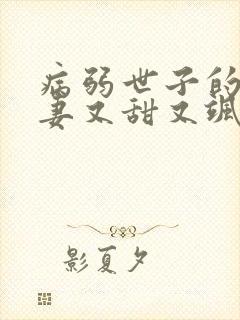 病弱世子的
妻又甜又飒
影夏夕